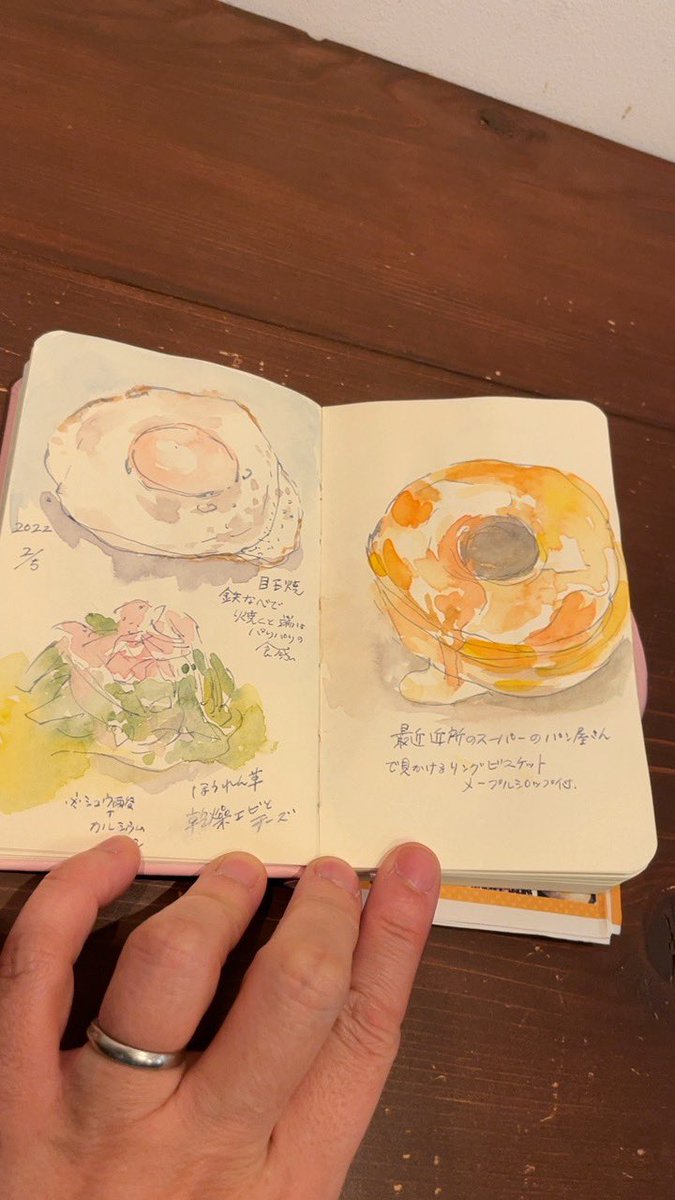 2022
2/5
目玉焼
鉄なべで
焼くと端は
パリパリの
食感。
ほうれん草
乾燥エビと
チーズ
シュウ酸
+
カルシウム
最近近所のスーパーのパン屋さん
で見かけるリングビスケット
メープルシロップ付.